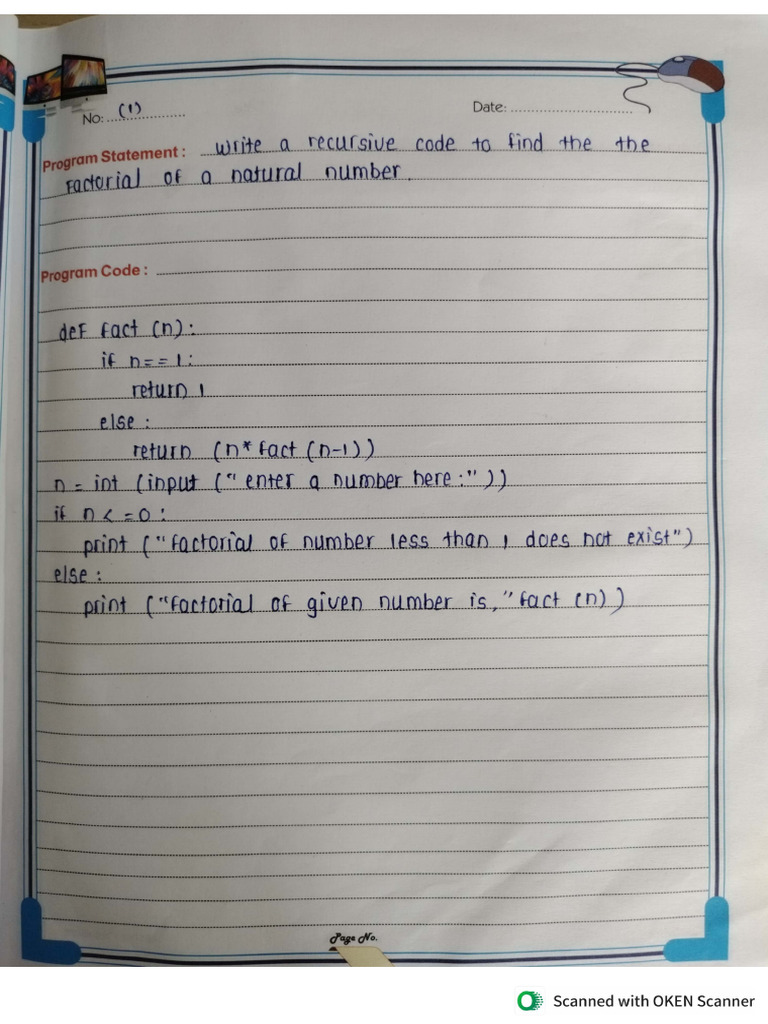 No: (1) Date:
Program Statement : Write a recursive code to find the the
factorial of a natural number.
Program Code :
def fact (n):
    if n==1:
        return 1
    else :
        return (n*fact (n-1))
n = int (input ("enter a number here:"))
if n<=0:
    print ("factorial of number less than 1 does not exist")
else :
    print ("factorial of given number is," fact (n))
Page No.
Scanned with OKEN Scanner